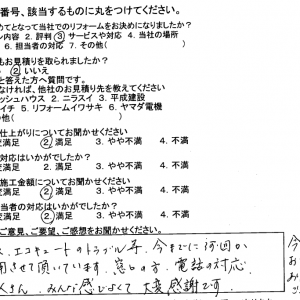 番号、該当するものに丸をつけてください。
めてとなって当社でのリフォームをお決めになりましたか?
ン内容 2. 評判 ③ サービスや対応 4. 当社の場所
6. 担当者の対応 7. その他(
もお見積りを取られましたか?
② いいえ
と答えた方へ質問です。
なければ、他社のお見積り先を教えてください
ッシュハウス 2. ニラスイ 3. 平成建設
イチ 5. リフォームイワサキ 6. ヤマダ電機
の他(
仕上がりについてお聞かせください
変満足 ② 満足 3. やや不満 4. 不満
対応はいかがでしたか?
変満足 ② 満足 3. やや不満 4. 不満
施工金額についてお聞かせください
変満足 ② 満足 3. やや不満 4. 不満
当者の対応はいかがでしたか
変満足 ② 満足 3. やや不満 4. 不満
ご意見、ご要望、ご感想をお聞かせください
エコキュートのトラブル等、今までに何回か
用させて頂いています。窓口の方、電話の対応
みんな感じよくて大変感謝です。
今
お
み